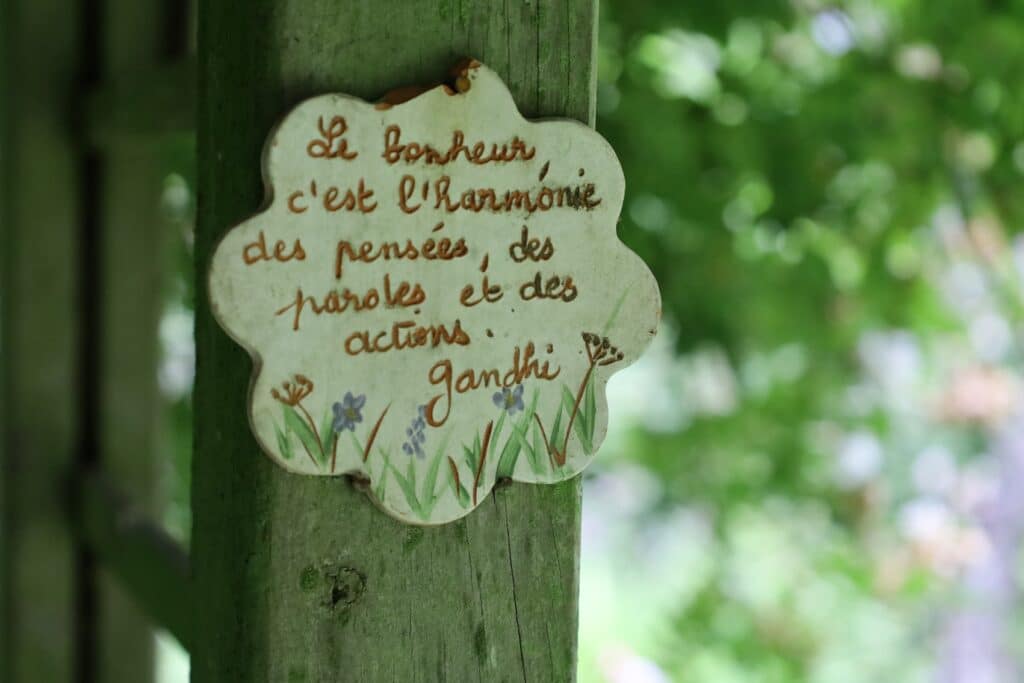 Le bonheur,
c'est l'harmónie
des pensées, des
paroles et des
actions.
Gandhi